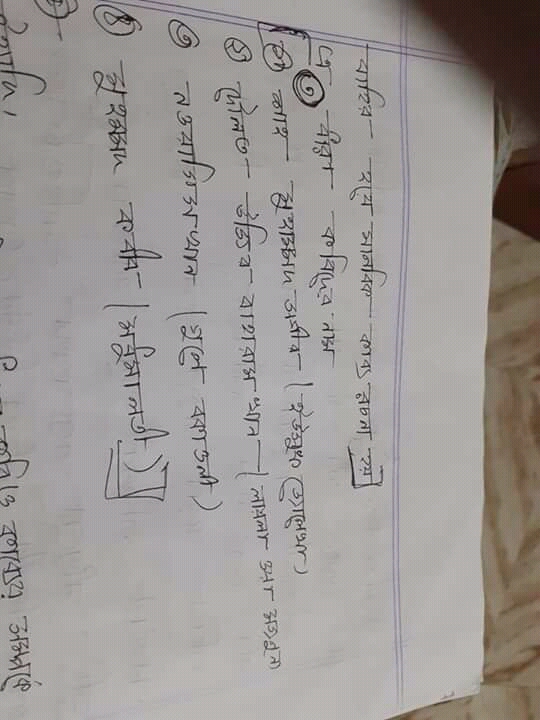 বাহির হয়ে মানবিক কাব্য রচনা হয়
এ ধারা কবিদের নাম
৩
১ শাহ মুহাম্মদ সগীর (ইউসুফ জোলেখা)
২ দৌলত উজির বাহরাম খান (লায়লা ওয়া মজনুন
৩ নওয়াজিস খান (গুলে বকাওলী)
৪ মুহম্মদ কবীর (মধুমালতী)
ইত্যাদি।
কাব্যের সম্পর্কে